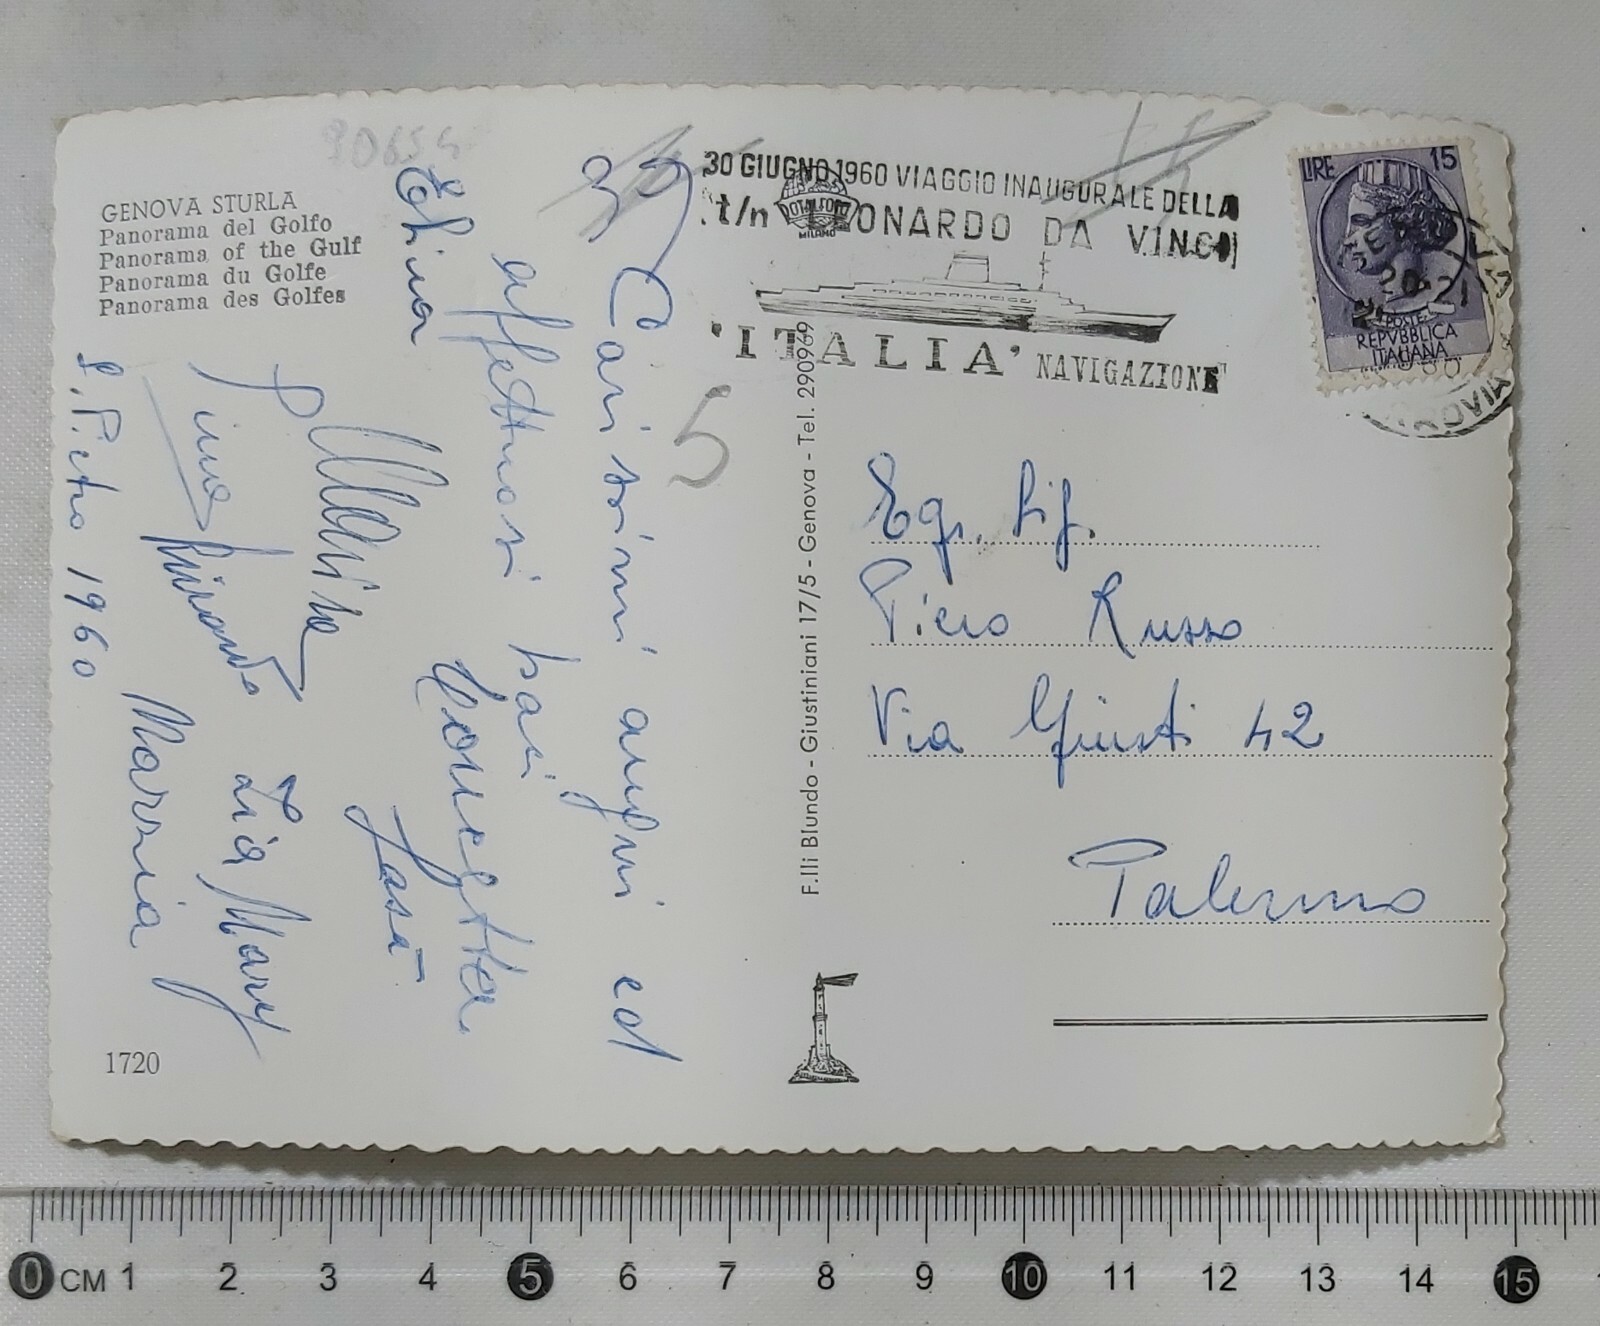 GENOVA STURLA
Panorama del Golfo
Panorama of the Gulf
Panorama du Golfe
Panorama des Golfes
Carissimi auguri ed
affettuosi baci
Marisa
Zia Mary
Marzia
S. Pietro 1960
1720
5
F.lli Blundo - Giustiniani 17/5 - Genova - Tel. 290969
30 GIUGNO 1960 VIAGGIO INAUGURALE DELLA
t/n LEONARDO DA VINCI
ROTALFOTO
MILANO
"ITALIA" NAVIGAZIONE
LIRE 15
POSTE
REPVBBLICA
ITALIANA
FERROVIA
Egr. Sig.
Piero Russo
Via Giusti 42
Palermo
0 CM 1 2 3 4 5 6 7 8 9 10 11 12 13 14 15